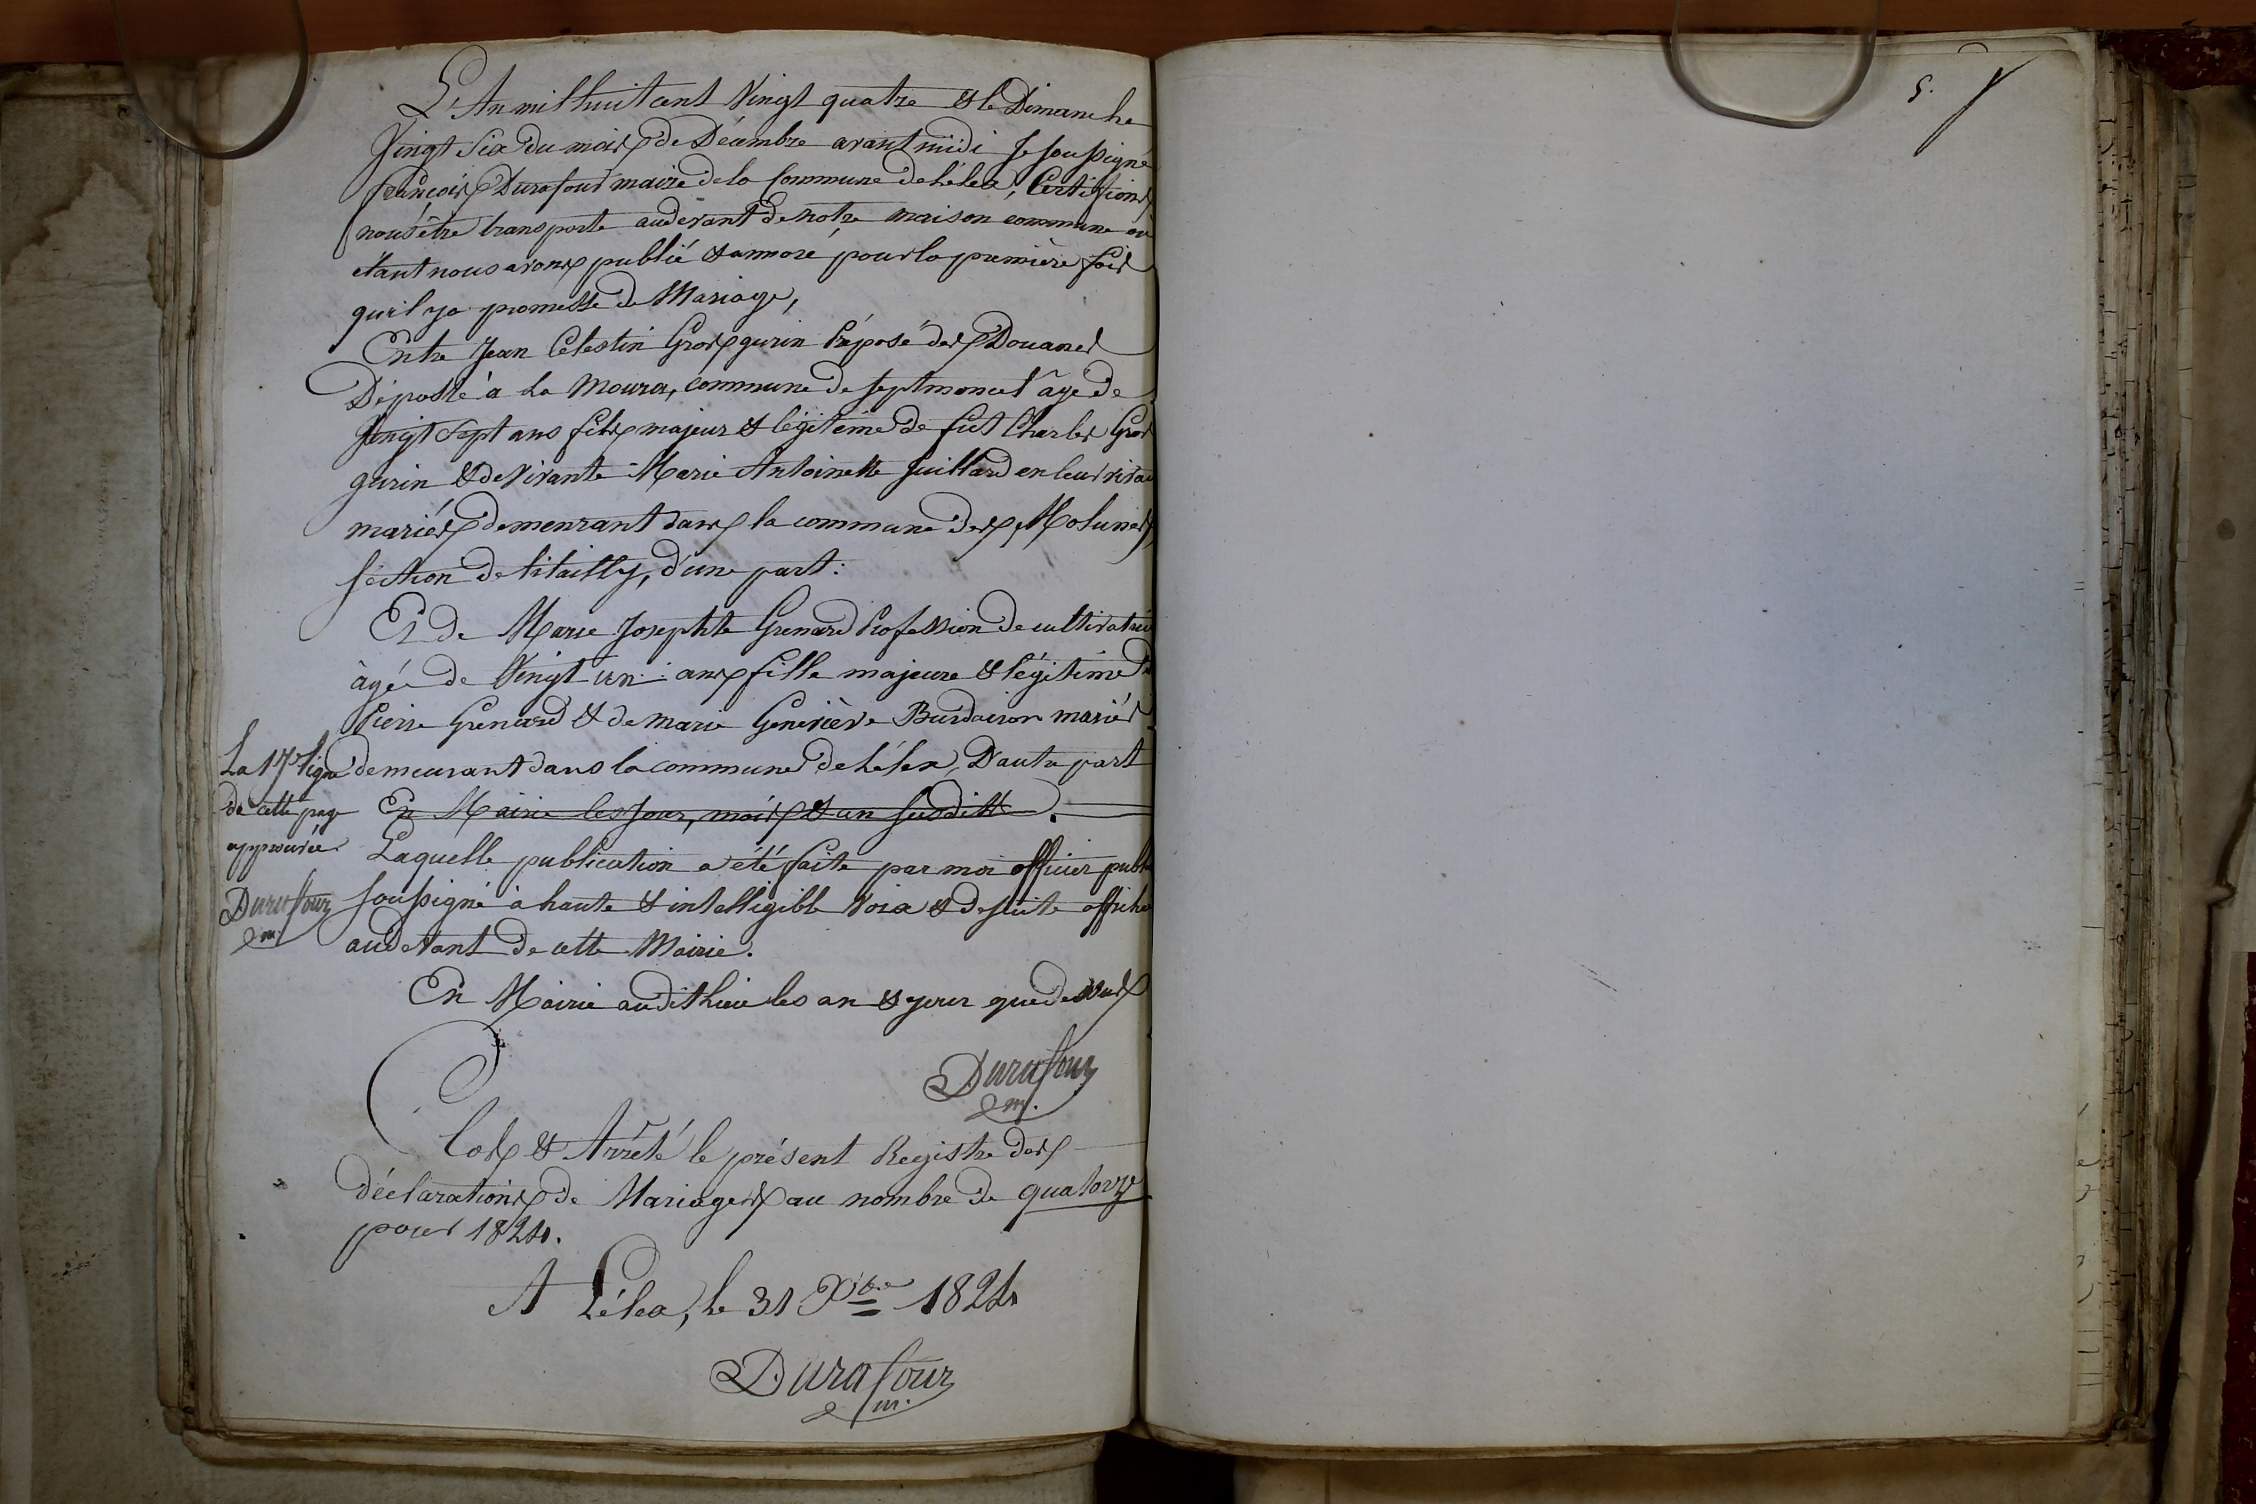 L'An mil huit cent Vingt quatre & le Dimanche
Vingt Six du mois de Décembre avant midi Je soussigné
françois Durafour maire de la Commune de Lélex, Certifions
nous être transporté audevant de notre maison commune où
étant nous avons publié & annoné pour la première fois
qu'il ya promesse de Mariage,
Entre Jean Célestin Grosgurin Préposé des Douanes
Déposté à La Moura, commune de septmoncel âgé de
Vingt Sept ans fils majeur & légitime de fut Charles Gros
gurin & de Vivante Marie Antoinette Juillard en leur vivant
mariés demeurant dans la commune des Molunes,
séction de
d'une part :
Et de Marie Josephte Grenard Profession de cultivatrice
âgée de Vingt un ans fille majeure & légitime de
Pierre Grenard & de marie Geneviève Burdairon mariés
demeurant dans la commune de Lélex, D'autre part
En Mairie les Jour, mois & an susdits.
Laquelle publication a été faite par moi officier public
soussigné à haute & intelligible Voix & de suite affiché
audevant de cette Mairie.
En Mairie audit lieu les an & jour que dessus
Durafour
m.
La 17e ligne
de cette page
approuvée
Durafour
m.
Clos & Arrêté le présent Registre des
déclarations de Mariages au nombre de quatorze
pour 1824.
A Lélex, le 31 Xbre 1824
Durafour
m.
5.